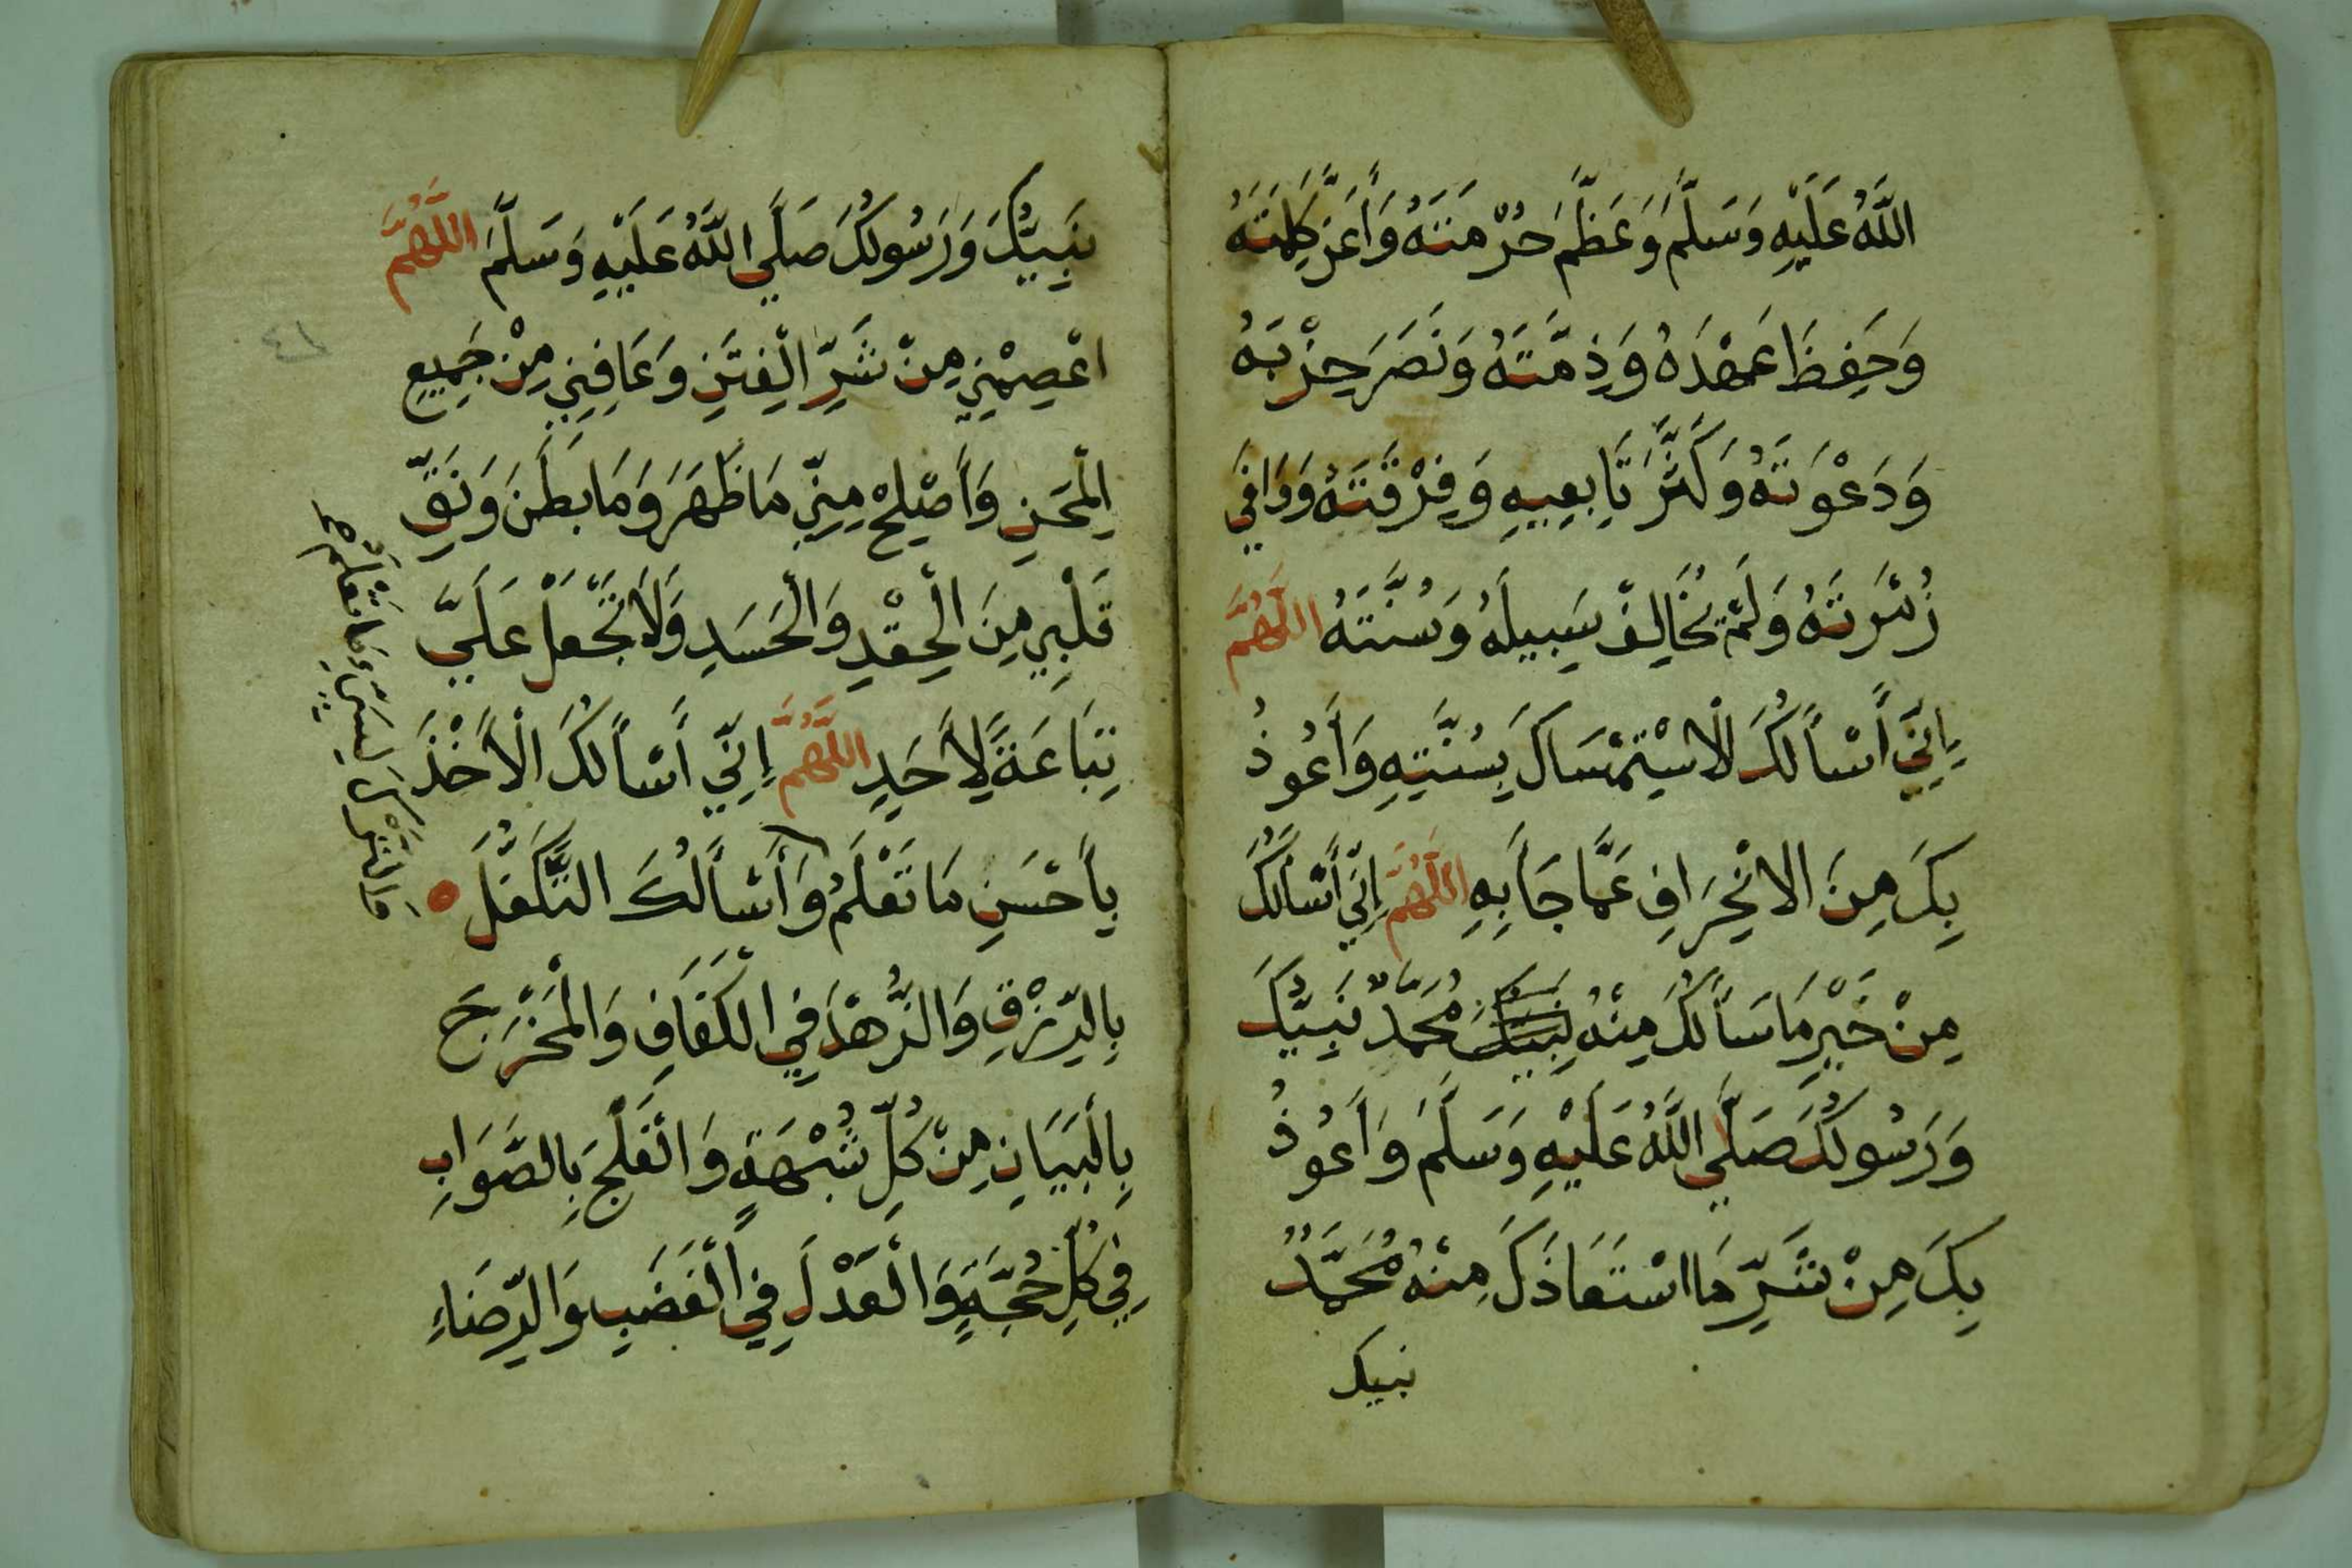 اللَّهُ عَلَيْهِ وَسَلَّمَ وَعَظَّمَ حُرْمَتَهُ وَأَعَزَّ كَلِمَتَهُ
وَحَفِظَ عَهْدَهُ وَذِمَّتَهُ وَنَصَرَ حِزْبَهُ
وَدَعْوَتَهُ وَكَثَّرَ تَابِعِيهِ وَفِرْقَتَهُ وَوَافَى
زُمْرَتَهُ وَلَمْ يُخَالِفْ سَبِيلَهُ وَسُنَّتَهُ اللَّهُمَّ
إِنِّي أَسْأَلُكَ الْاسْتِمْسَاكَ بِسُنَّتِهِ وَأَعُوذُ
بِكَ مِنَ الانْحِرَافِ عَمَّا جَاءَ بِهِ اللَّهُمَّ إِنِّي أَسْأَلُكَ
مِنْ خَيْرِ مَا سَأَلَكَ مِنْهُ مُحَمَّدٌ نَبِيُّكَ
وَرَسُولُكَ صَلَّى اللَّهُ عَلَيْهِ وَسَلَّمَ وَأَعُوذُ
بِكَ مِنْ شَرِّ مَا اسْتَعَاذَكَ مِنْهُ مُحَمَّدٌ
نبيك
نَبِيُّكَ وَرَسُولُكَ صَلَّى اللَّهُ عَلَيْهِ وَسَلَّمَ اللَّهُمَّ
اعْصِمْنِي مِنْ شَرِّ الْفِتَنِ وَعَافِنِي مِنْ جَمِيعِ
الْمِحَنِ وَأَصْلِحْ مِنِّي مَا ظَهَرَ وَمَا بَطَنَ وَنَقِّ
قَلْبِي مِنَ الْحِقْدِ وَالْحَسَدِ وَلَا تَجْعَلْ عَلَيَّ
تِبَاعَةً لِأَحَدٍ اللَّهُمَّ إِنِّي أَسْأَلُكَ الْأَخْذَ
بِأَحْسَنِ مَا تَعْلَمُ وَأَسْأَلُكَ التَّكَفُّلَ
بِالرِّزْقِ وَالزُّهْدَ فِي الْكَفَافِ وَالْمَخْرَجَ
بِالْبَيَانِ مِنْ كُلِّ شُبْهَةٍ وَالْفَلَجَ بِالصَّوَابِ
فِي كُلِّ حُجَّةٍ وَالْعَدْلَ فِي الْغَضَبِ وَالرِّضَاءِ
وَالتَّرْكَ لِسَيِّئِ مَا تَعْلَمُ